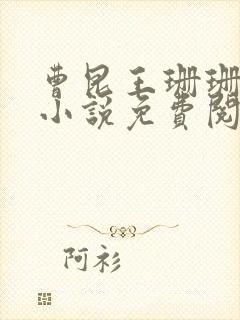 曹昆王珊珊
小说免費閱
阿衫